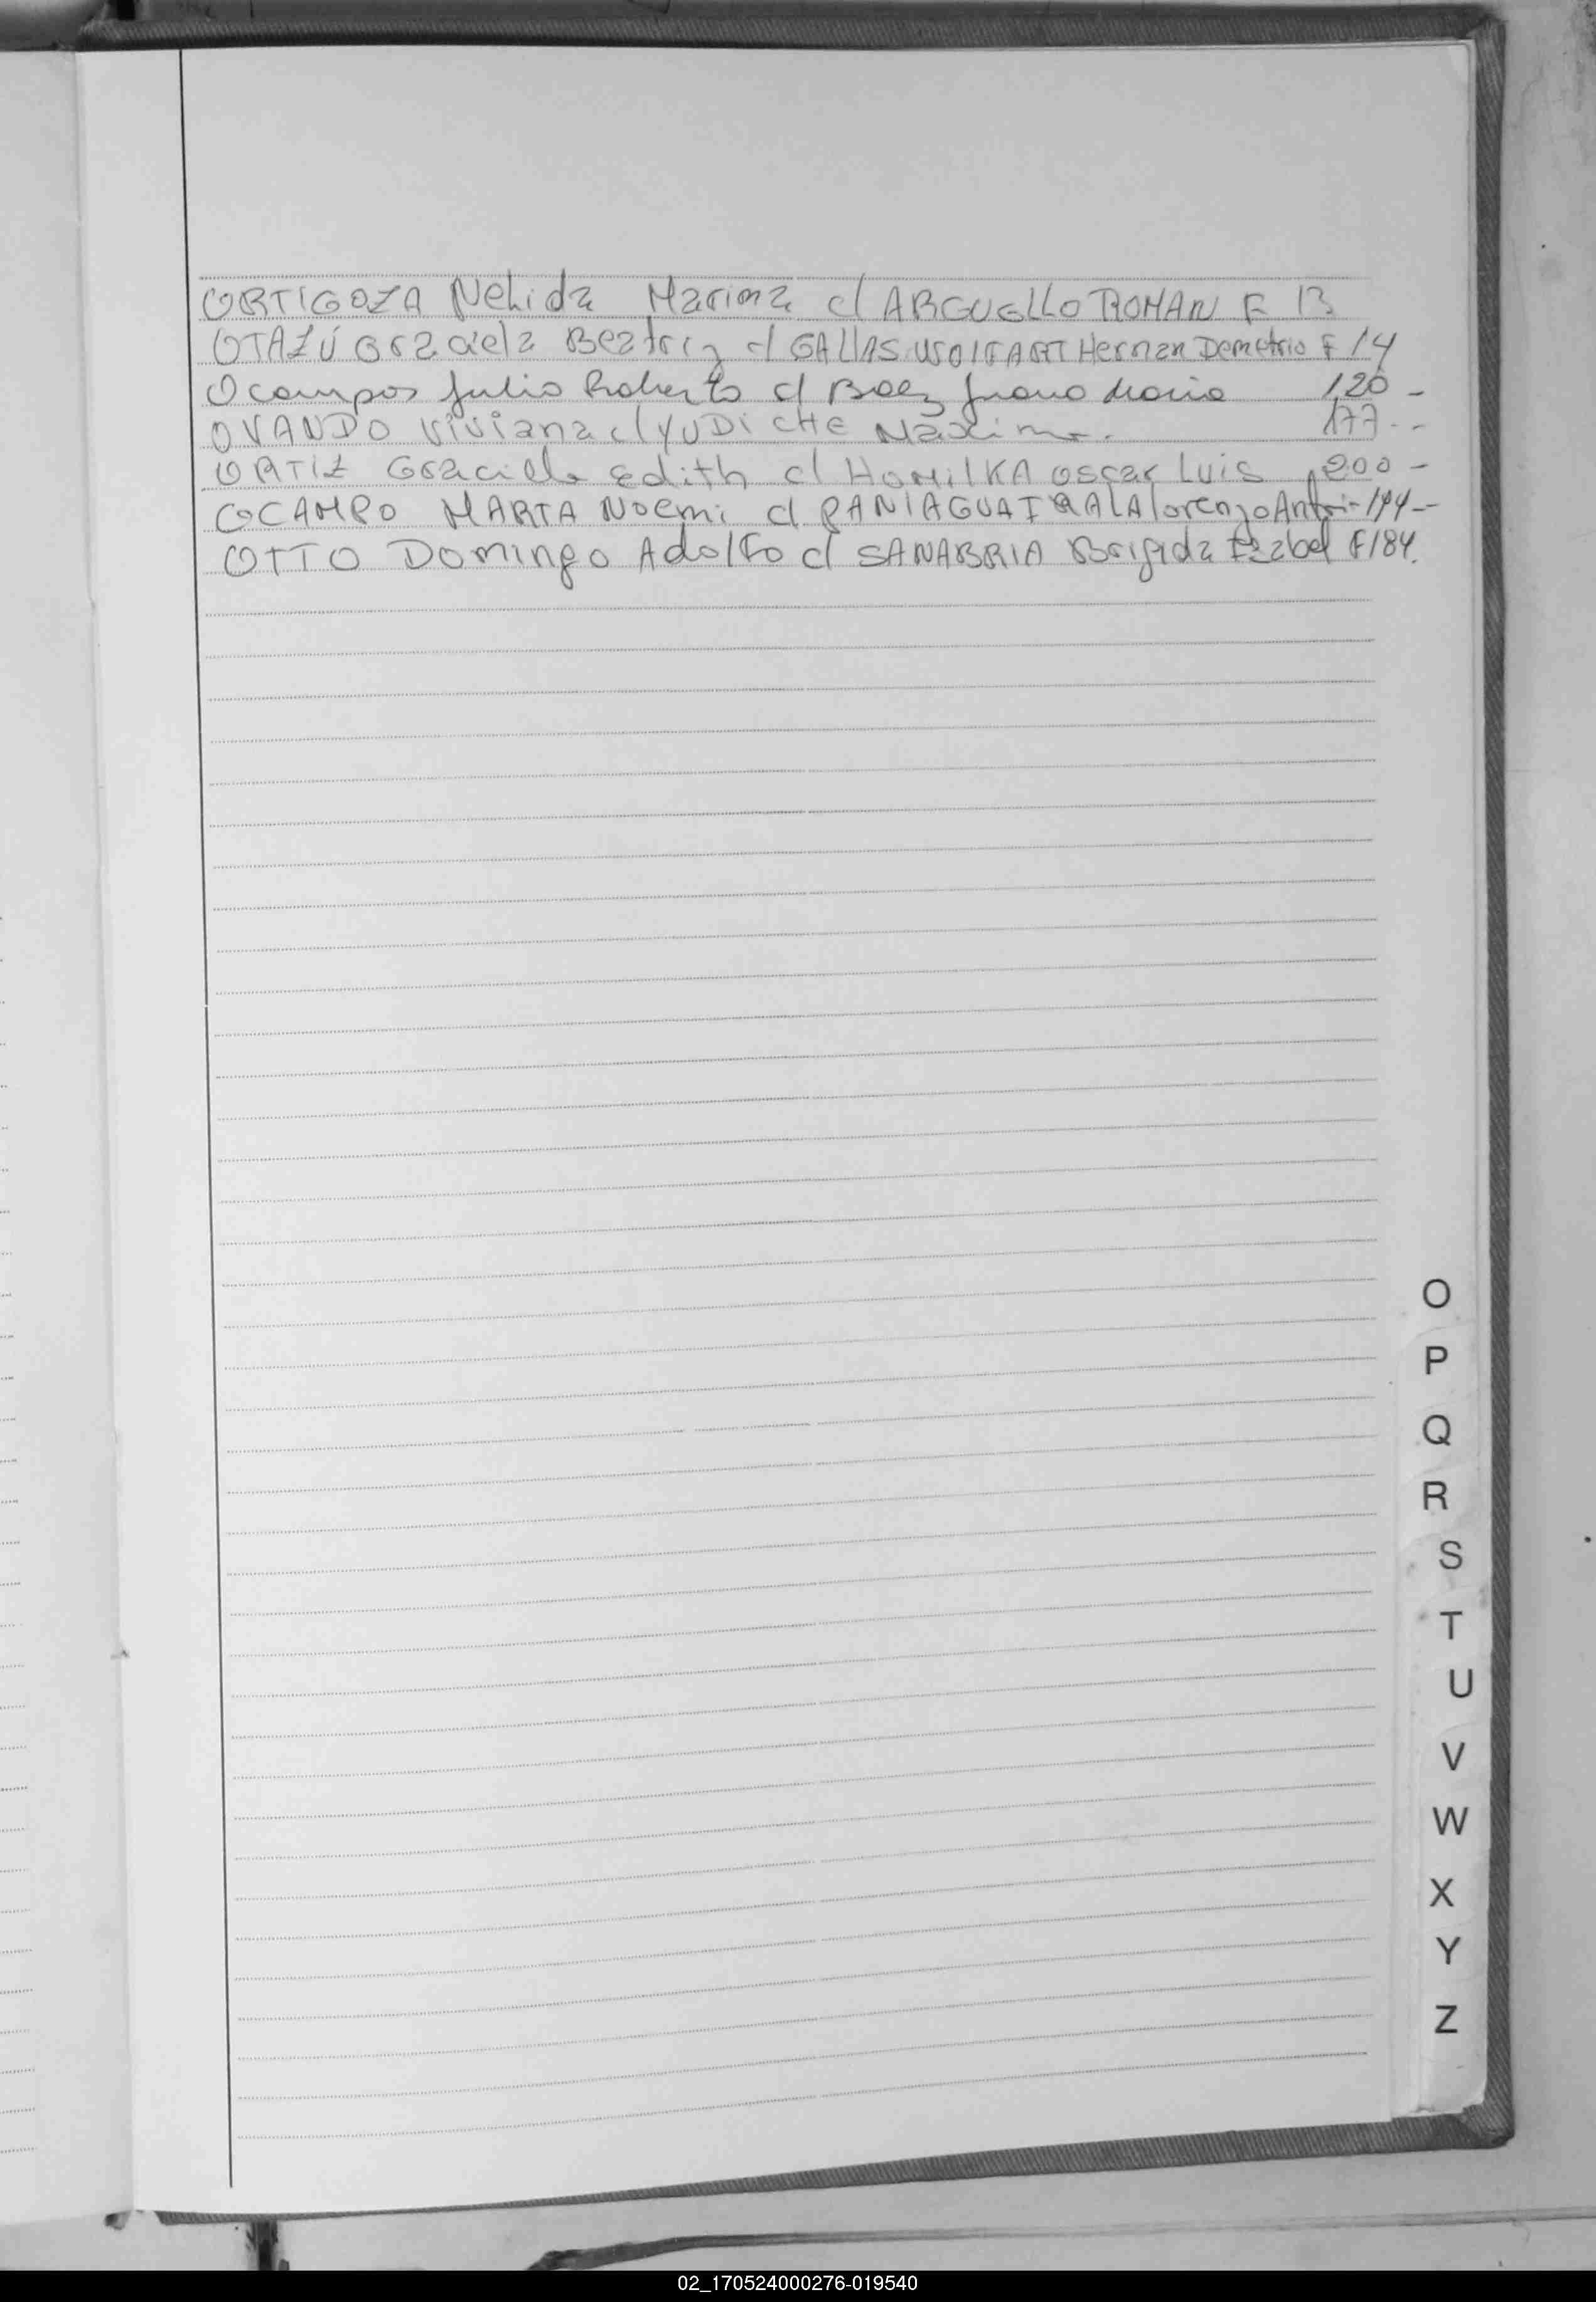 ORTIGOZA Nelida Marina c/ ARGUELLO ROMAN F 13
OTAZÚ Graciela Beatriz c/ GALLAS WOLFART Hernan Demetrio F 14
Ocampos Julio Roberto c/ Baez Juana Maria 120 -
OVANDO Viviana c/ YUDICHE Maximo. 177 - -
ORTIZ Graciela Edith c/ HOMILKA Oscar Luis 200 -
OCAMPO MARTA Noemi c/ PANIAGUA Lorenzo 194 --
OTTO Domingo Adolfo c/ SANABRIA Brigida Isabel F 184.
O
P
Q
R
S
T
U
V
W
X
Y
Z
02_170524000276-019540